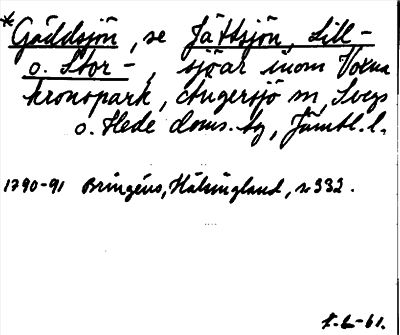 *Gäddsjön, se Jättsjön, Lill-
o. Stor-, sjöar inom Voxna
kronopark, Ängersjö sn, Svegs
o. Hede doms. tg, Jämtl. l.
1790-91 Bringéus, Hälsingland, s 332.